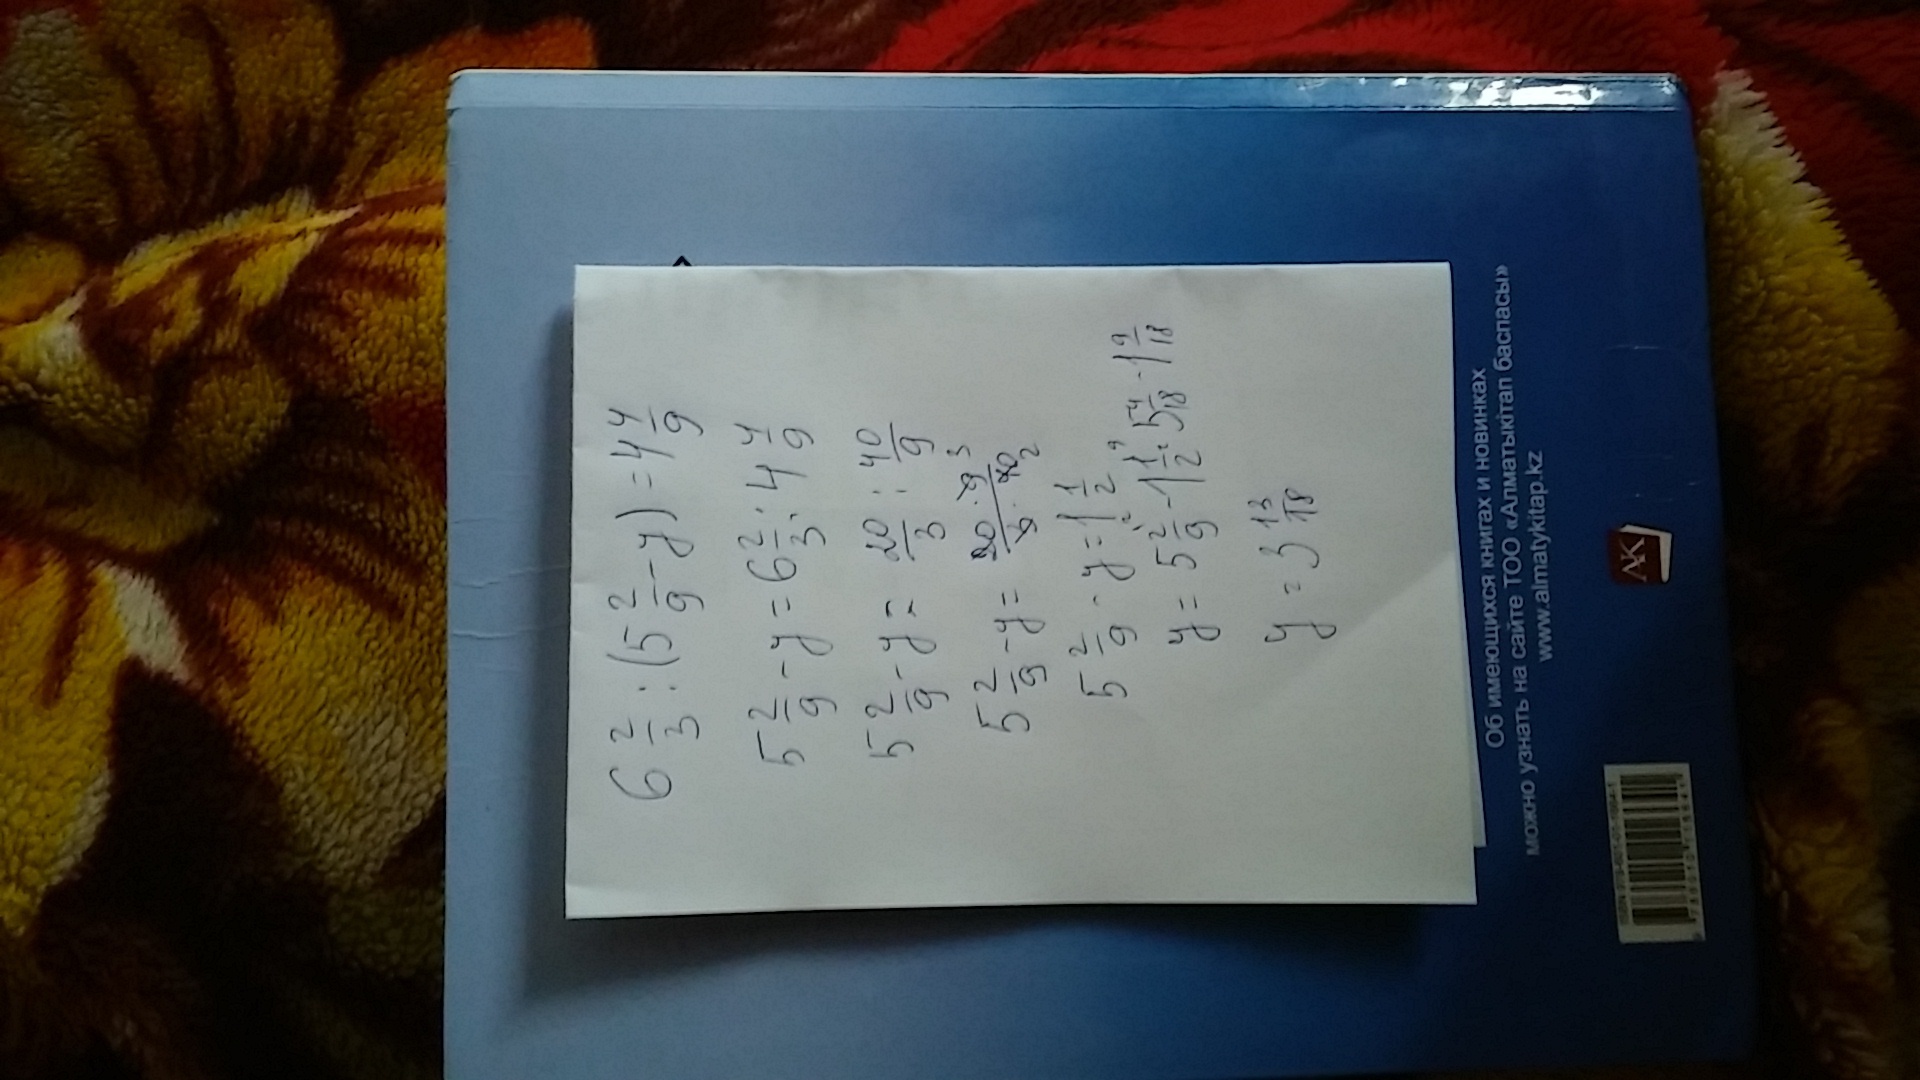 6 2/3 : (5 2/9 - y) = 4 4/9
5 2/9 - y = 6 2/3 : 4 4/9
5 2/9 - y = 20/3 : 40/9
5 2/9 - y = 20 · 9 3 / 3 · 40 2
5 2/9 - y = 1 1/2
y = 5 2/9 - 1 1/2 = 5 4/18 - 1 9/18
y = 3 13/18
Об имеющихся книгах и новинках
можно узнать на сайте ТОО «Алматыкітап баспасы»
www.almatykitap.kz
AK